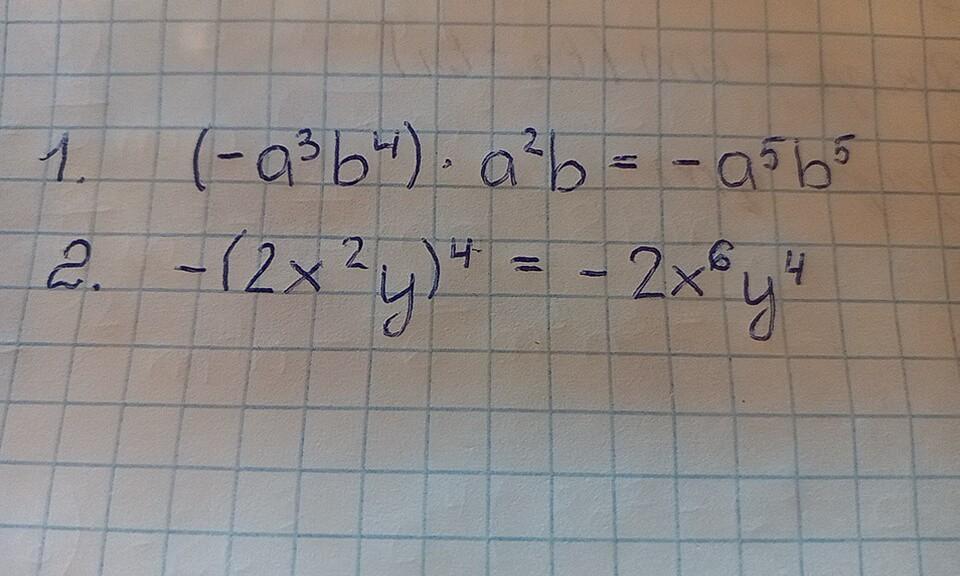 1. (-a³b⁴) · a²b = -a⁵b⁵
2. -(2x²y)⁴ = -2x⁶y⁴